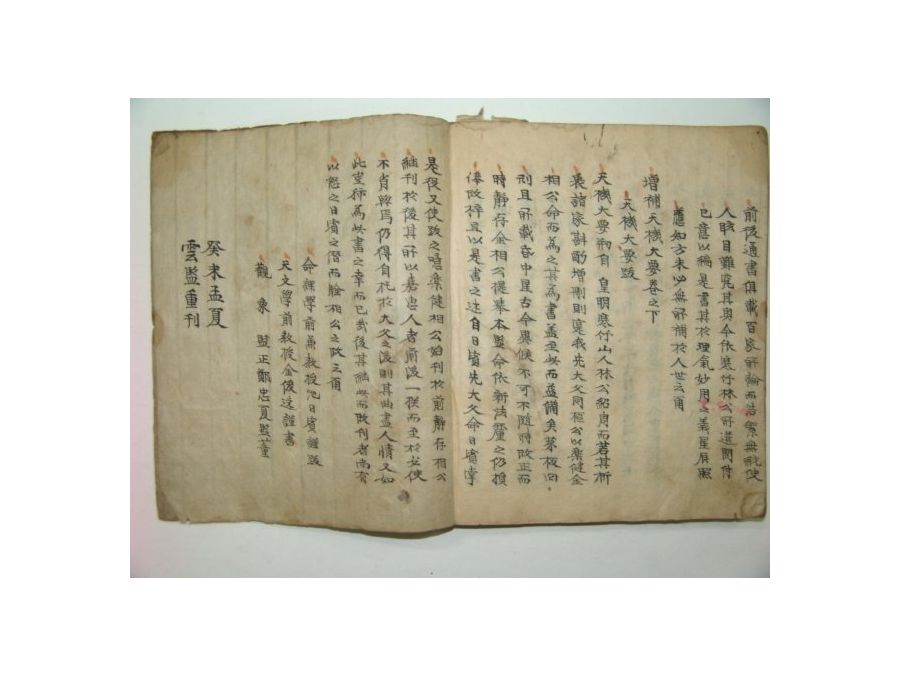 前後通書俱載百家所論而浩繁無統使
人眩目難究其奧今依寒竹林公所遺閒付
已意以編是書其於理氣妙用之義星辰照
應知方未必無所補於人世云爾
增補天機大要卷之下
天機大要跋
天機大要剏自 皇明寒竹山人林公紹周而若其所
裒諸家斟酌增刪則寔我先大父同樞公以樂健金
相公命而爲之其爲書盖至此而益備矣第板旧
刓且所載昏中星古今異候不可不隨時改正而
時靜存金相公提擧本監命依新法釐之仍捐
俸改梓且以是書之述自日賓先大父命日賓掌
是役又使跋之噫樂健相公始刊於前靜存相公
継刊於後其所以嘉惠人者前後一揆而至於並使
不肖幹焉仍得自托於大父之後則其曲盡人情又如
此豈徒爲此書之幸而已哉後其繼此而改刊者尚有
以恕之日賓之僭而諒相公之政云爾
命課學前兼敎授池日賓謹跋
天文學前敎授金俊逵謹書
觀 象 監正鄭忠夏監董
癸未孟夏
雲監重刊